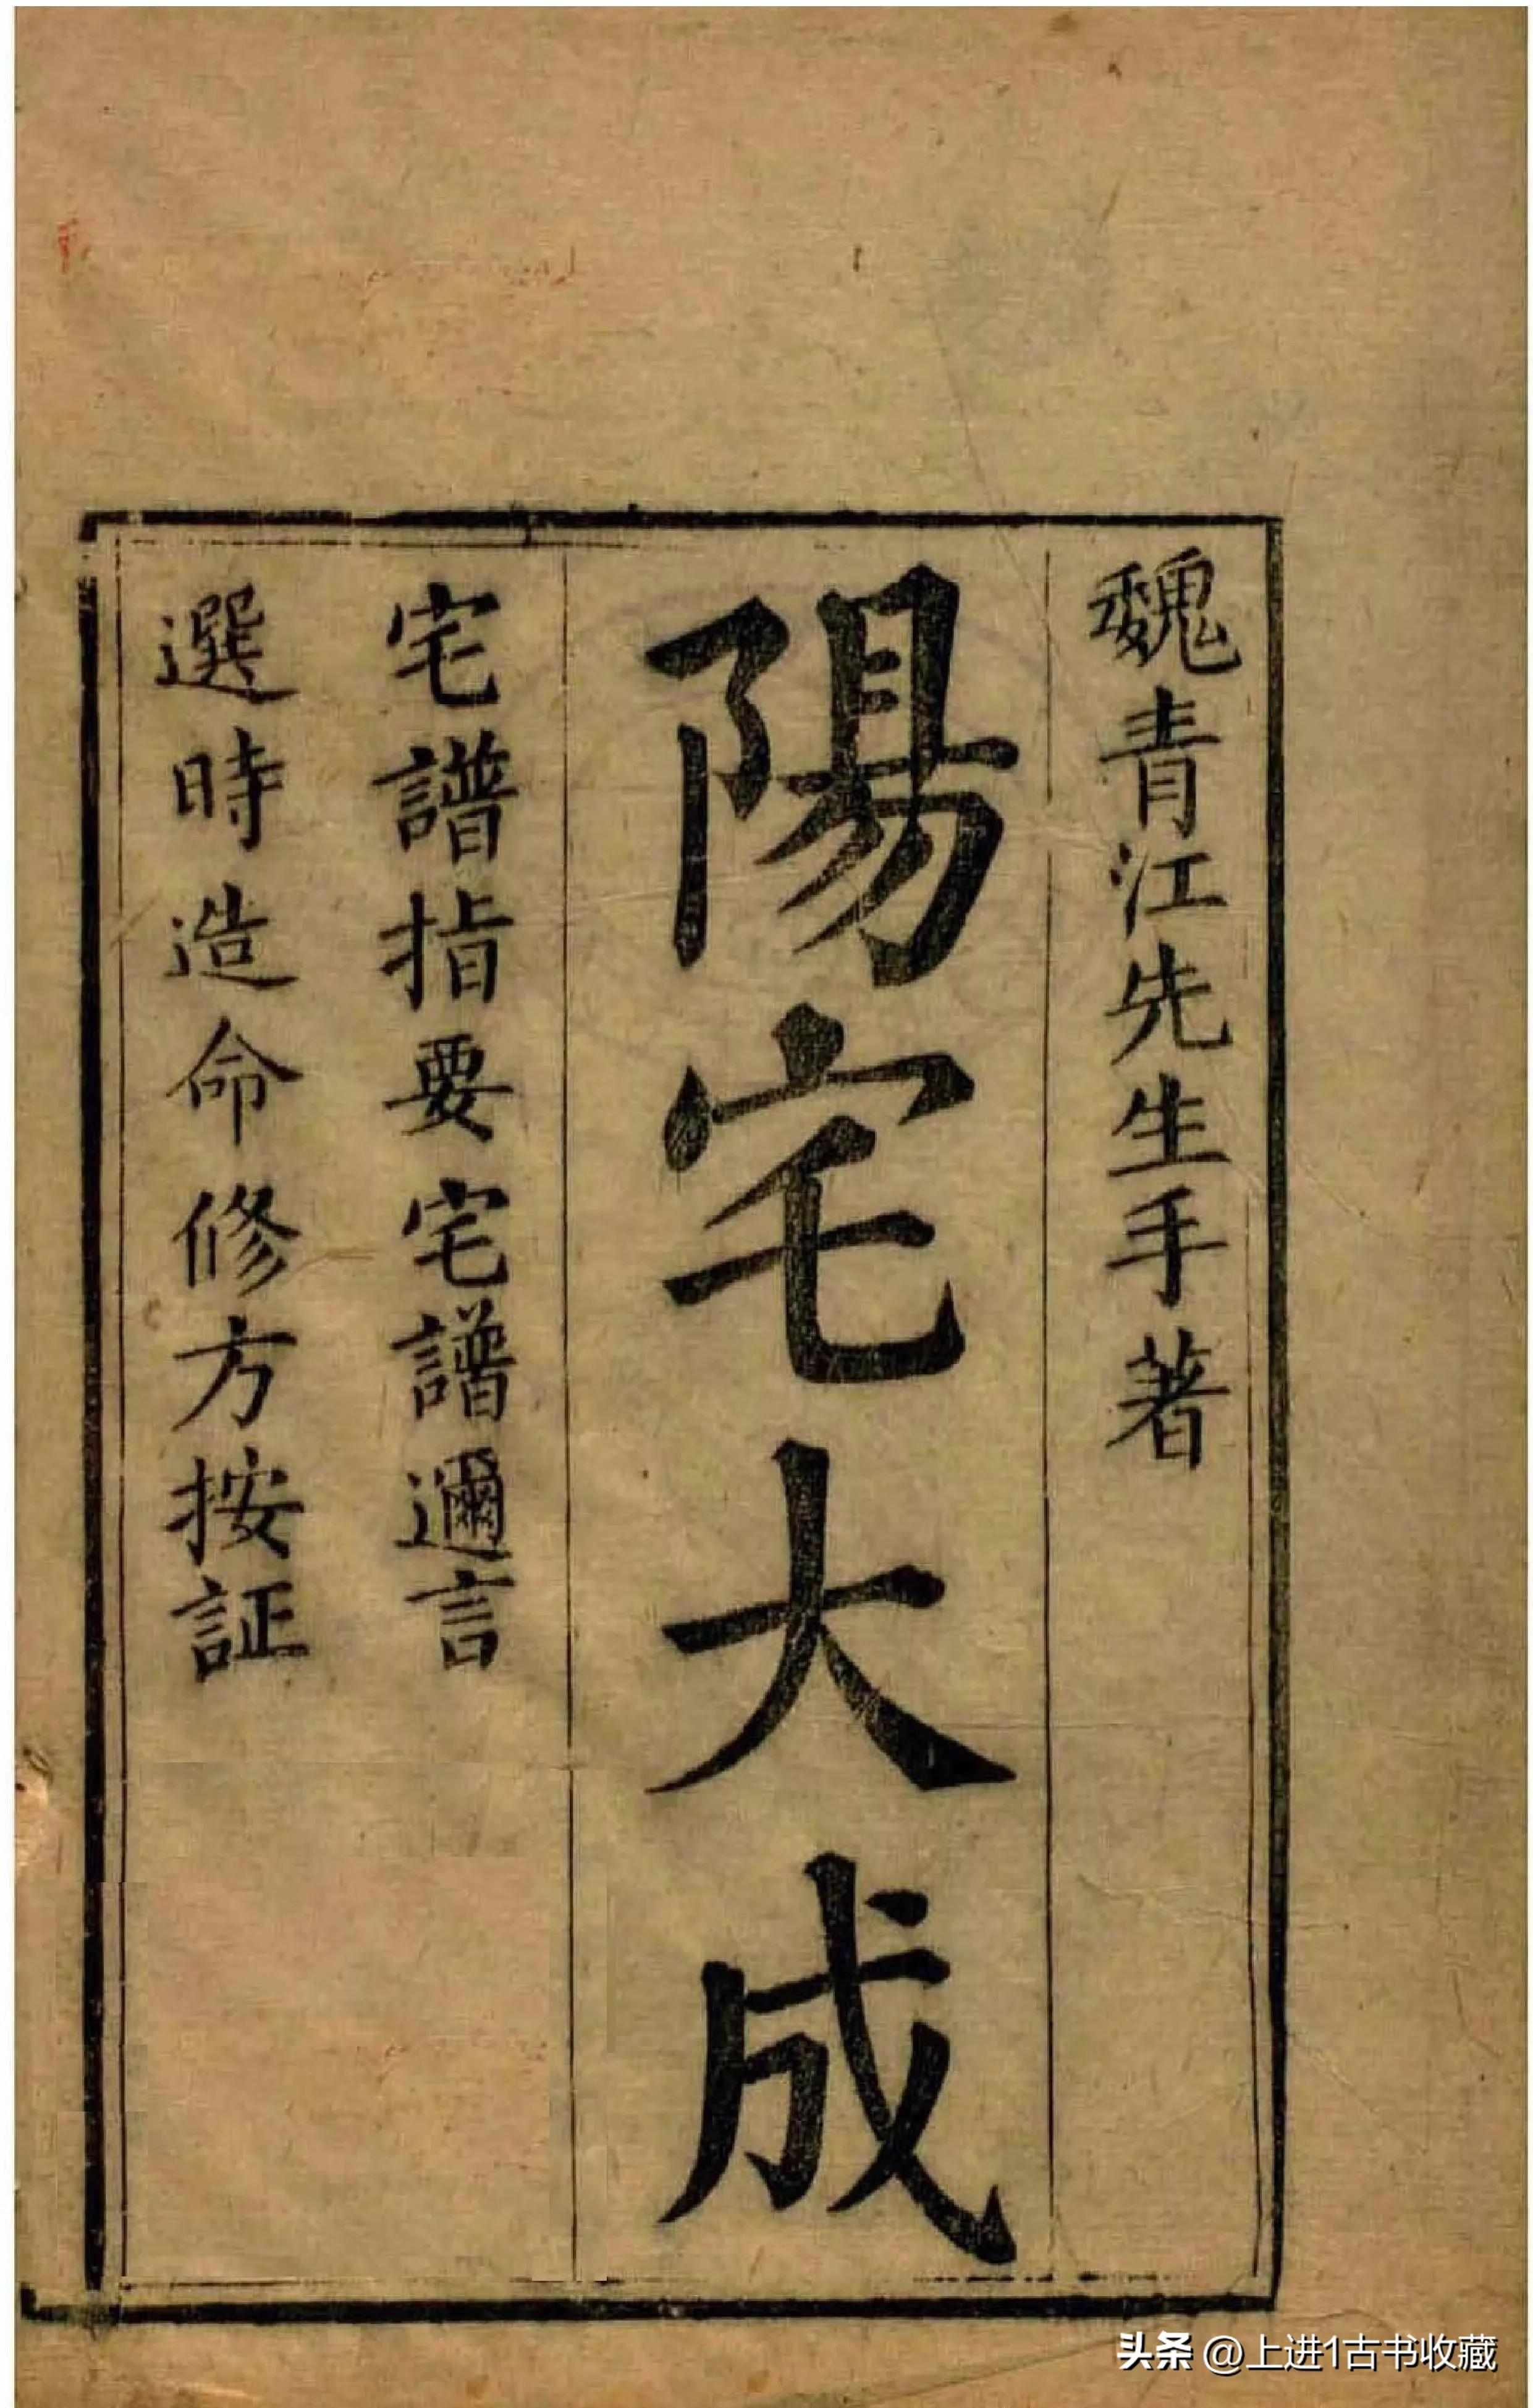 魏青江先生手著
陽宅大成
宅譜指要宅譜邇言
選時造命修方按証
头条 @上进1古书收藏